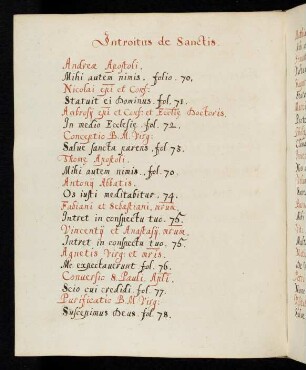 Introitus de Sanctis.
Andreæ Apostoli.
Mihi autem nimis, folio. 70.
Nicolai epi et Conf:
Statuit ei Dominus. fol. 71.
Ambrosij epi et Conf: et Ecclie Doctoris.
In medio Ecclesiæ. fol. 72.
Conceptio B. M. Virg:
Salue sancta parens, fol 73.
Thomæ Apostoli.
Mihi autem nimis., fol. 70.
Antonij Abbatis.
Os iusti meditabitur. 74.
Fabiani et Sebastiani, mrum.
Intret in conspectu tuo. 75.
Vincentij et Anastasij. mrum.
Intret in conspectu tuo. 75.
Agnetis Virg: et mris.
Me expectauerunt fol. 76.
Conuersio S. Pauli. Apli.
Scio cui credidi. fol. 77.
Purificatio B M Virg:
Suscepimus Deus. fol 78.